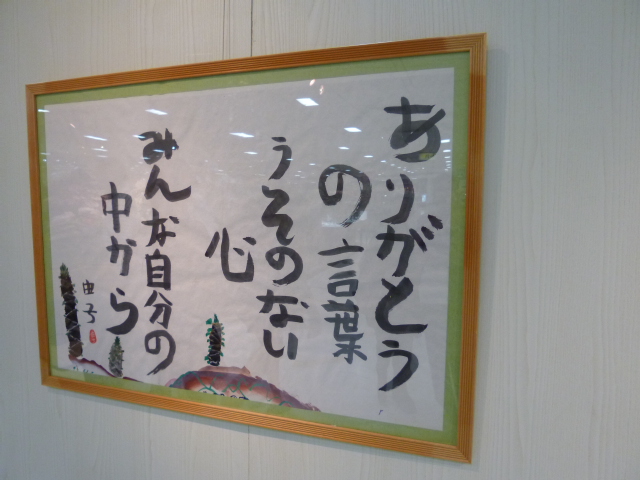 ありがとう
の言葉
うそのない
心
みんな自分の
中から
由子